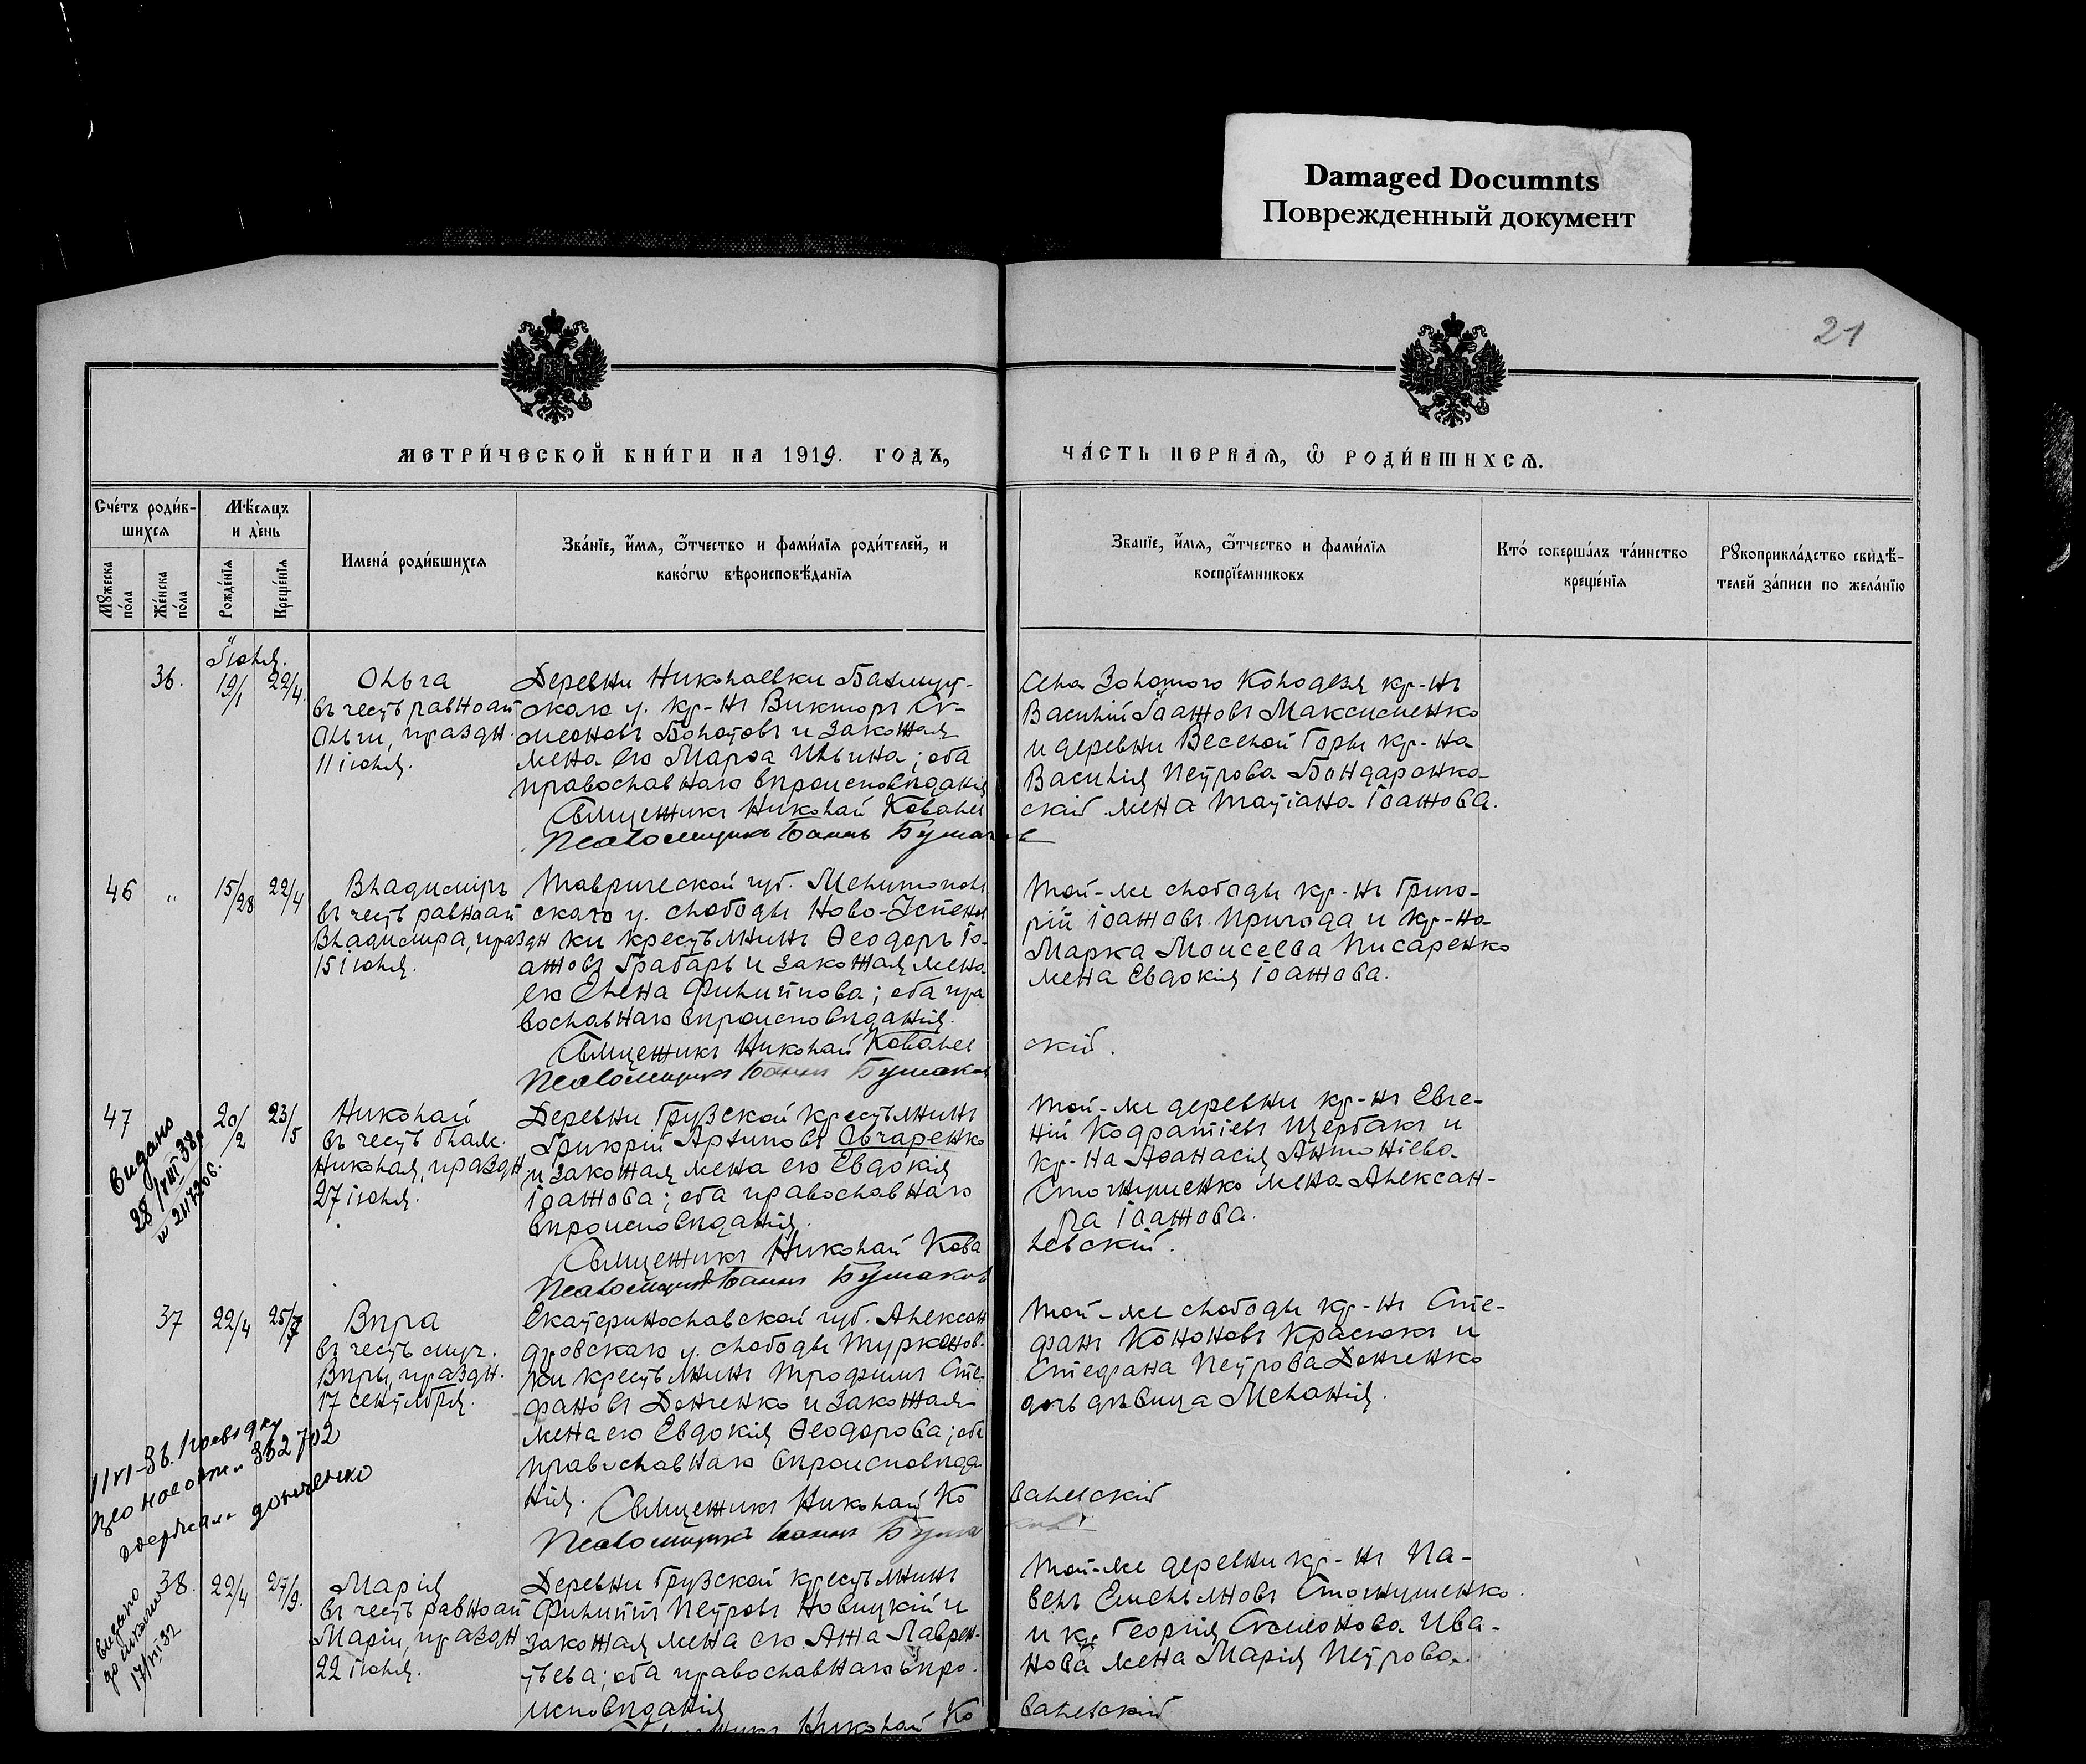 Damaged Documnts
Поврежденный документ
21
МЕТРИ́ЧЕСКОЙ КНИ́ГИ НА 1919. ГОДЪ,
ЧА́СТЬ ПЕРВАѦ, Ѽ РОДИ́ВШИХСѦ.
Сче́тъ роди́в-
шихсѧ
Мѣ́сѧцъ
и де́нь
Мꙋ́жеска
по́ла
Же́нска
по́ла
Рожде́нїѧ
Креще́нїѧ
Имена́ роди́вшихсѧ
Зва́нїе, и́мѧ, ѻ҆́тчество и фами́лїѧ роди́телей, и
како́гѡ вѣроисповѣ́данїѧ
Зва́нїе, и́мѧ, ѻ҆́тчество и фами́лїѧ
воспрїе́мниковъ
Кто́ соверша́лъ та́инство
креще́нїѧ
Рꙋкоприкла́дство свидѣ́-
телей за́писи по жела́нїю
Іюня.
36.
19/1
22/4.
Ольга
въ честь равноап
Ольги, праздн.
11 іюля.
Деревни Николаевки Бахмут-
скаго у. кр-нъ Викторъ Си-
меоновъ Болотовъ и законная
жена его Марѳа Ильина; оба
православнаго вѣроисповѣданія
Священникъ Николай Ковалев
Псаломщикъ Іоаннъ Бушаков
Села Золотого Колодезя кр-нъ
Василій Іоанновъ Максименко
и деревни Веселой Горы кр-на
Василія Петрова Бондаренко
скій жена Татіана Іоаннова.
46
"
15/28
22/4
Владиміръ
въ честь равноап
Владиміра, праздн
15 іюля.
Таврической губ. Мелитополь
скаго у. слободы Ново-Успенов
ки крестьянинъ Ѳеодоръ Іо-
анновъ Грабарь и законная жена
его Елена Филиппова; оба пра
вославнаго вѣроисповѣданія.
Священникъ Николай Ковалев
Псаломщикъ Іоаннъ Бушаков
Той-же слободы кр-нъ Григо-
рій Іоанновъ Пригода и кр-на
Марка Моисеева Писаренко
жена Евдокія Іоаннова.
скій.
47
20/2
23/5
видано
28/VIII 38р
Николай
въ честь благ.
Николая, праздн
27 іюля.
Деревни Грузской крестьянинъ
Григорій Архиповъ Овчаренко
и законная жена его Евдокія
Іоаннова; оба православнаго
вѣроисповѣданія.
Священникъ Николай Кова
Псаломщикъ Іоаннъ Бушаков
Той-же деревни кр-нъ Евге-
ній Кодратіевъ Щербакъ и
кр-на Аѳанасія Антоніева
Стогнушенко жена Алексан-
ра Іоаннова.
левскій.
37
22/4
25/7
Вѣра
въ честь муч.
Вѣры, праздн.
17 сентября.
Екатеринославской губ. Алексан
дровскаго у. слободы Туркенов-
ки крестьянинъ Трофимъ Сте-
фановъ Донченко и законная
жена его Евдокія Ѳеодорова; оба
православнаго вѣроисповѣда
нія. Священникъ Николай Ко
Псаломщикъ Іоаннъ Буша
Той-же слободы кр-нъ Сте-
фанъ Кононовъ Красюкъ и
Стефана Петрова Донченко
дочь дѣвица Меланія.
валевскій
1/VI-36. довідку
одержала Донченко
38.
22/4
27/9.
видано
17/VI 32
Марія
въ честь равноап
Маріи, праздн
22 іюля.
Деревни Грузской крестьянинъ
Филиппъ Петровъ Новицкій и
законная жена его Анна Лаврен-
тьева; оба православнаго вѣро-
исповѣданія
Священникъ Николай Ко
Той-же деревни кр-нъ Па-
велъ Емельяновъ Стогнушенко
и кр. Георгія Симеонова Ива-
нова жена Марія Петрова.
валевскій